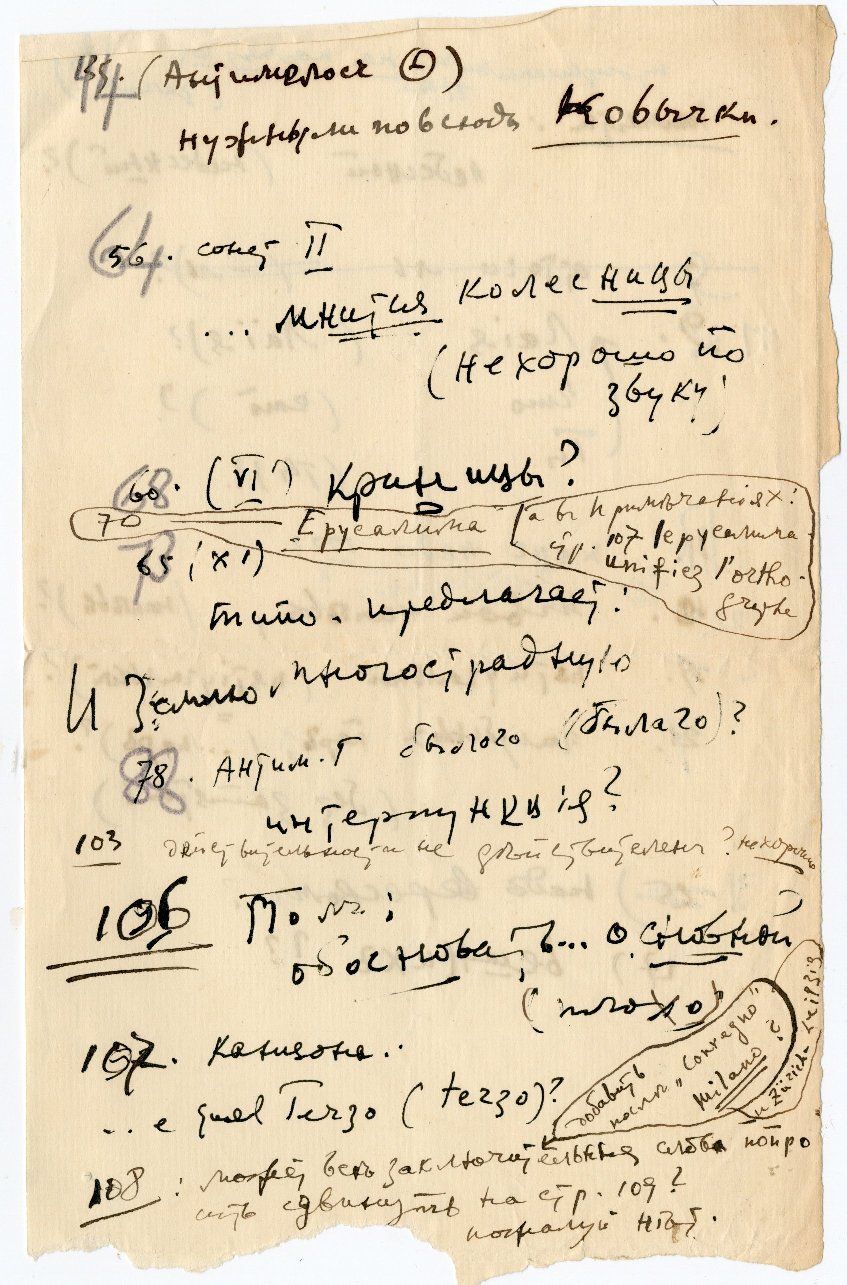 (Антимелосъ ①)
нужны ли повсюду Ковычки.
64
56. сонет II
... мнится колесницы
(нехорошо по
звуку)
68
60. (VI) Криницы?
70 Ерусалима
Та въ примѣчаніяхъ:
стр. 107 Іерусалима
unifiez l'ortho-
graphe
73
65 (XI)
типо. предлагает:
И Землю многострадную
88
78. Антим. Г былого (былаго)?
интерпункція?
103 действительности не действителенъ? нехорошо
106 Прим:
обосновать... основной
(плохо)
107. канцона..
... e quel Terzo (terzo)?
добавить
послѣ „Convegno"
Milano?
и Zürich-Leipzig
108: может быть заключительныя слова попро
сить сдвинуть на стр. 109?
пожалуй нѣт.